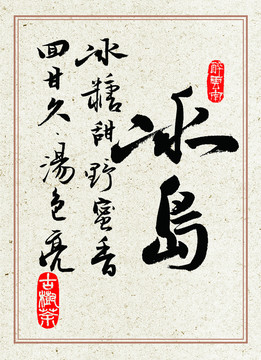 冰島
冰糖甜野蜜香
回甘久·湯色亮
古樹茶